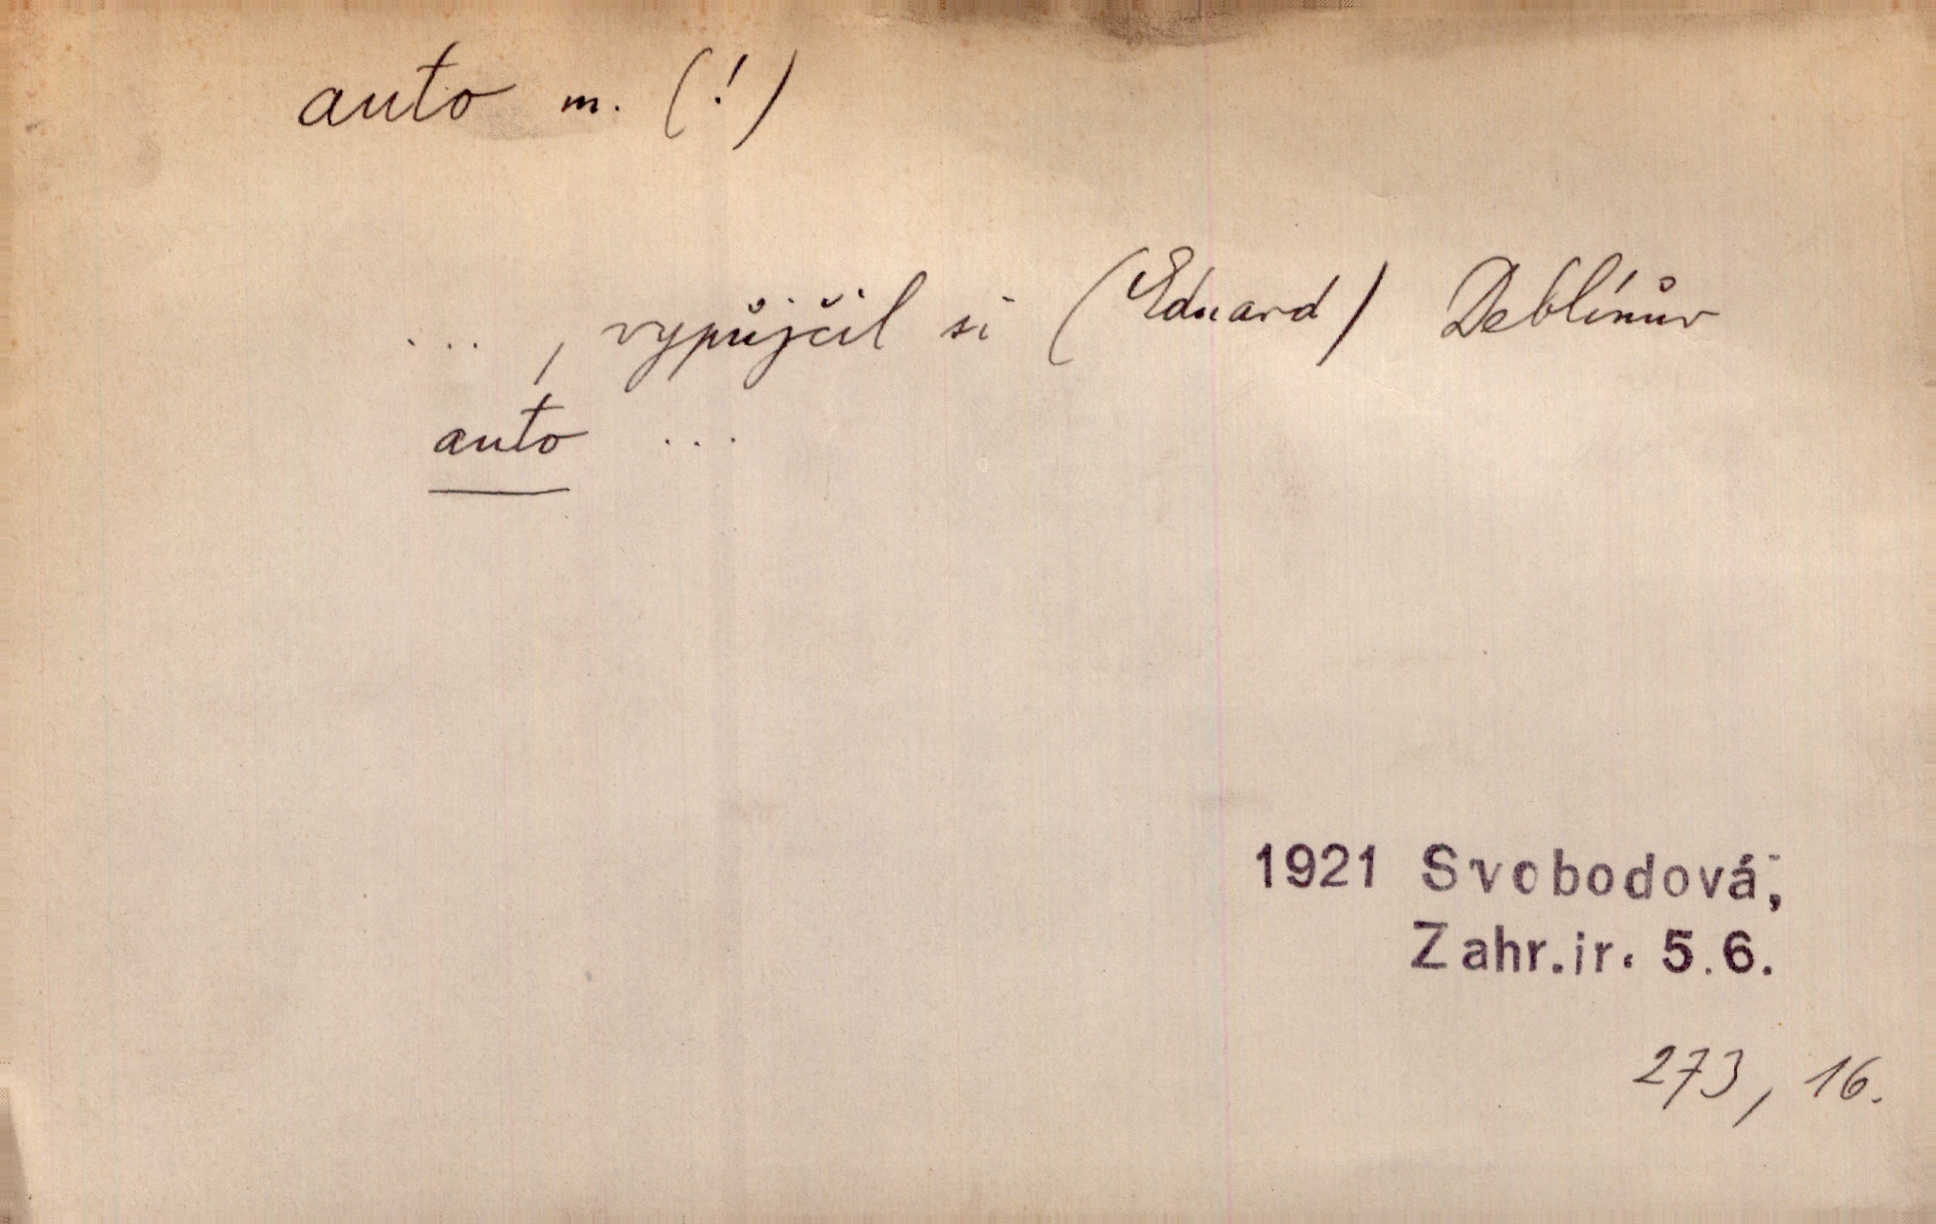 auto m. (!)
..., vypůjčil si (Eduard) Deblínův
auto ...
1921 Svobodová,
Zahr.ir. 5.6.
273, 16.